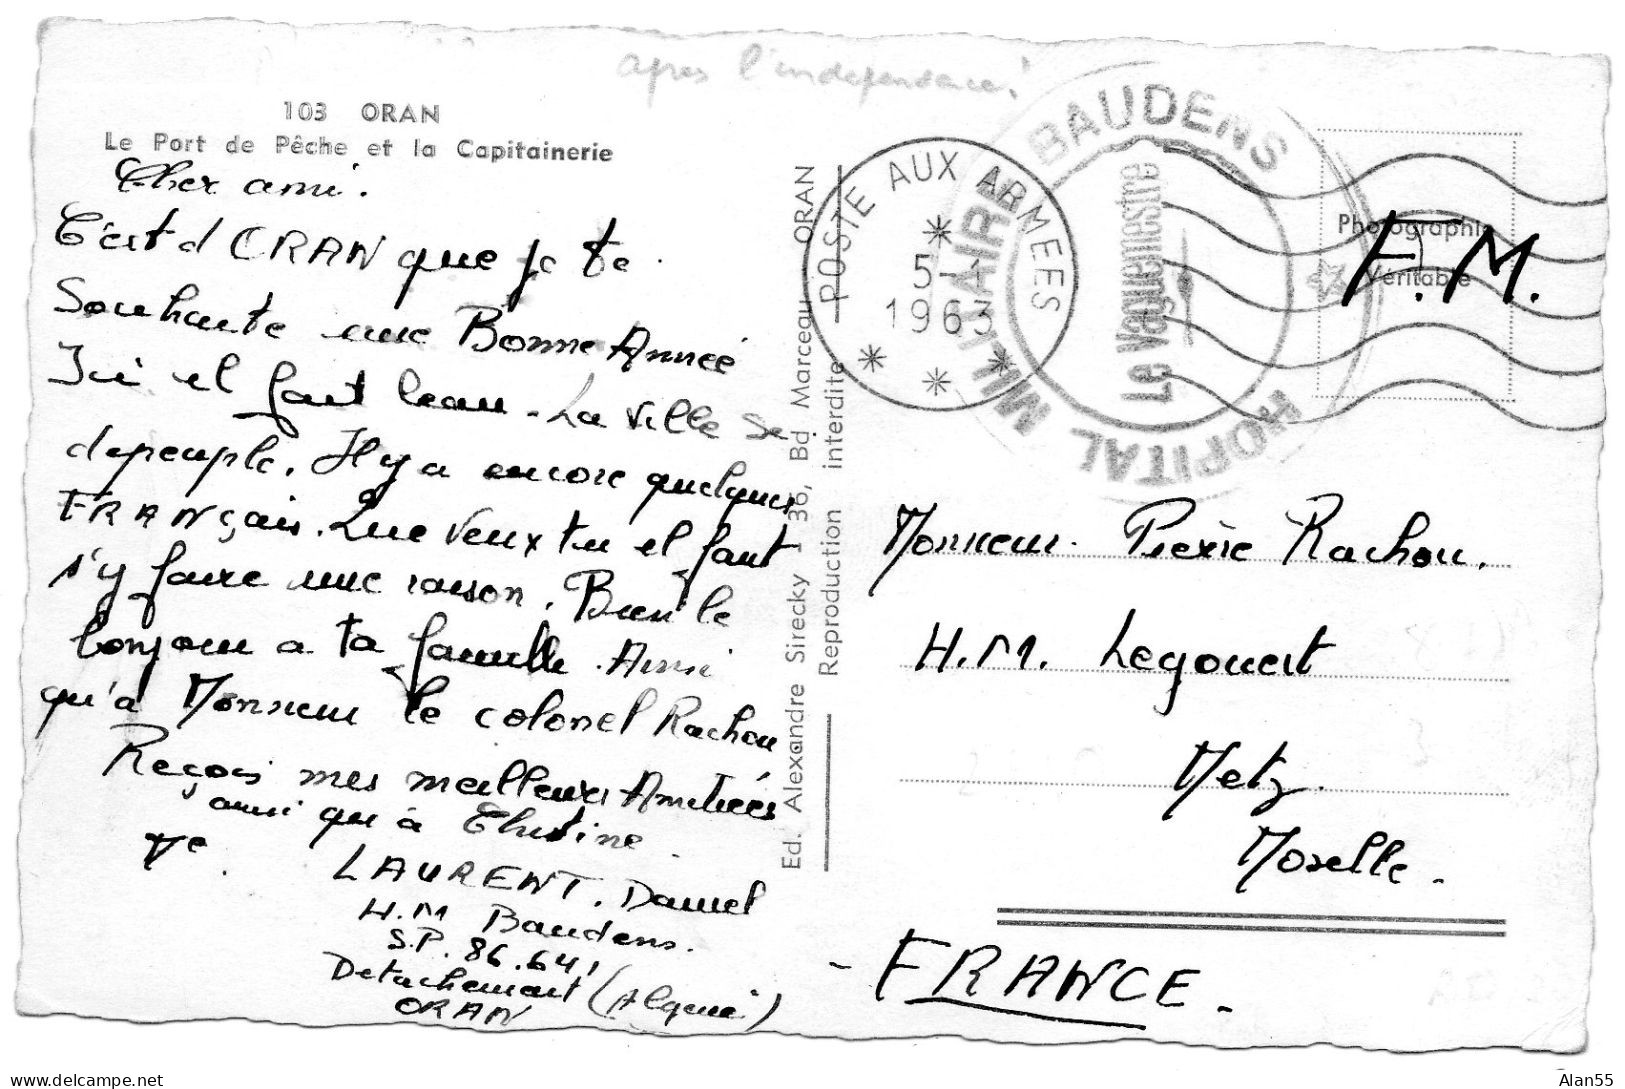 après l'indépendance!
103 ORAN
Le Port de Pêche et la Capitainerie
Cher ami.
C'est d ORAN que je te
Souhaite une Bonne Année
Ici il fait beau - La ville se
depeuple. Il y a encore quelques
FRANçais. Que veux tu il faut
s'y faire une raison. Bien le
bonjour a ta famille. Ainsi
qu'à Monsieur le colonel Rachou
Reçois mes meilleures Amitiées
ainsi qu'à
LAURENT. Daniel
H.M Baudens.
S.P. 86.641
Detachement
ORAN (Algerie)
Ed. Alexandre Sirecky - 36, Bd Marceau - ORAN
Reproduction interdite
POSTE AUX ARMEES
5-1
1963
HOPITAL MILITAIRE BAUDENS
Le Vaguemestre
Photographie
Véritable
F.M.
Monsieur. Pierre Rachou.
H.M. Legouest
Metz.
Moselle.
- FRANCE.
delcampe.net
Alan55